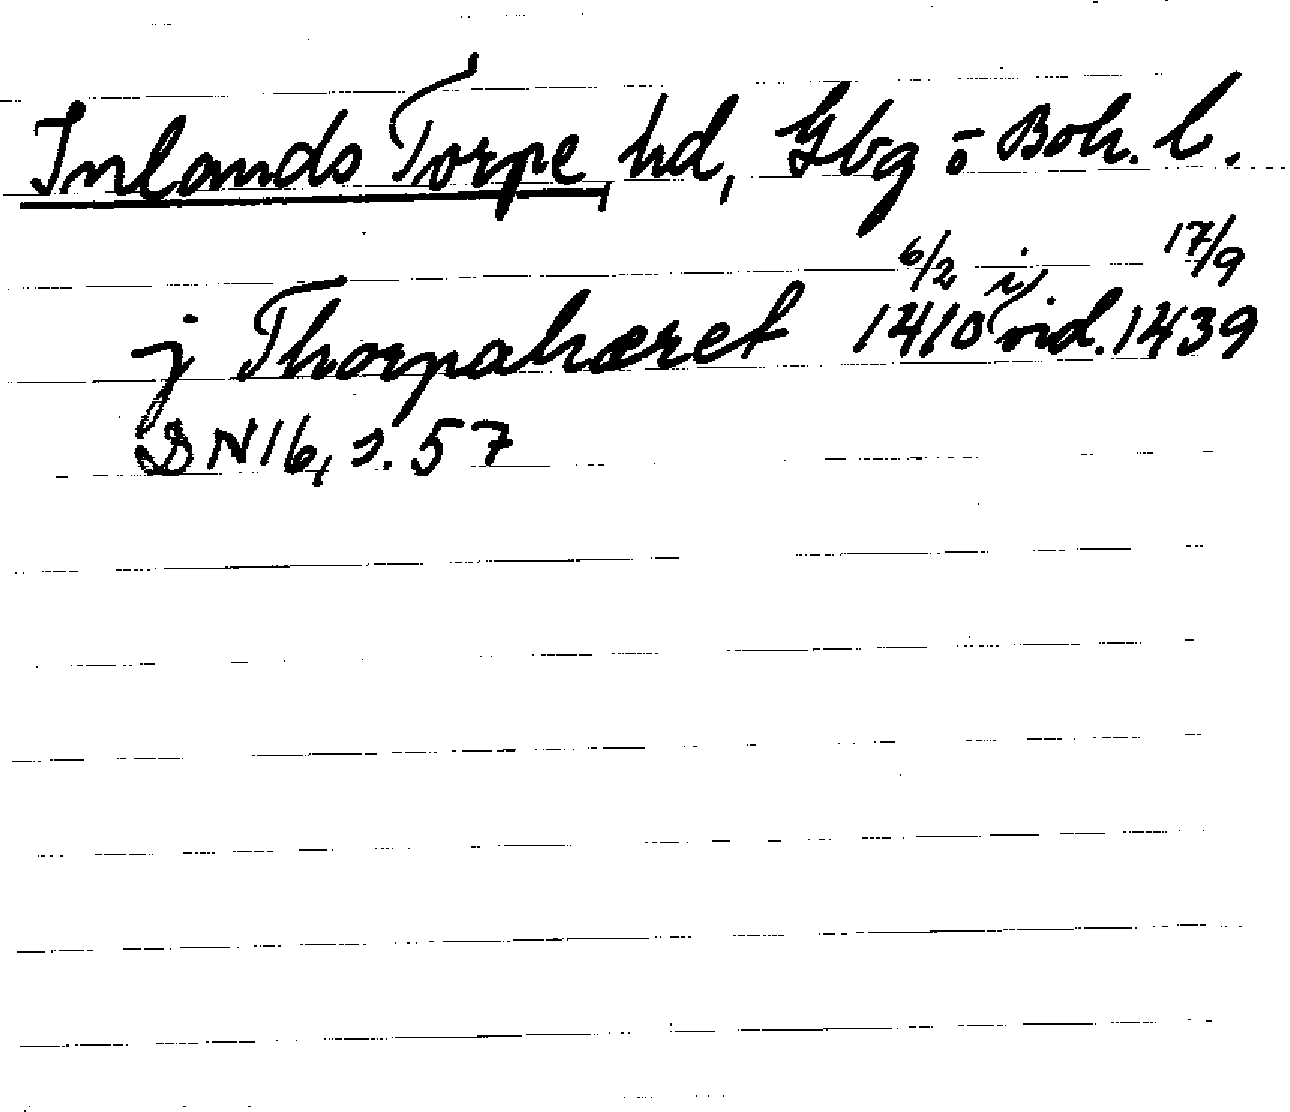 Inlands Torpe, hd, Gbg o Boh. l.
j Thorpahæret 6/2 1410 i vid. 17/9 1439
DN 16, s. 57